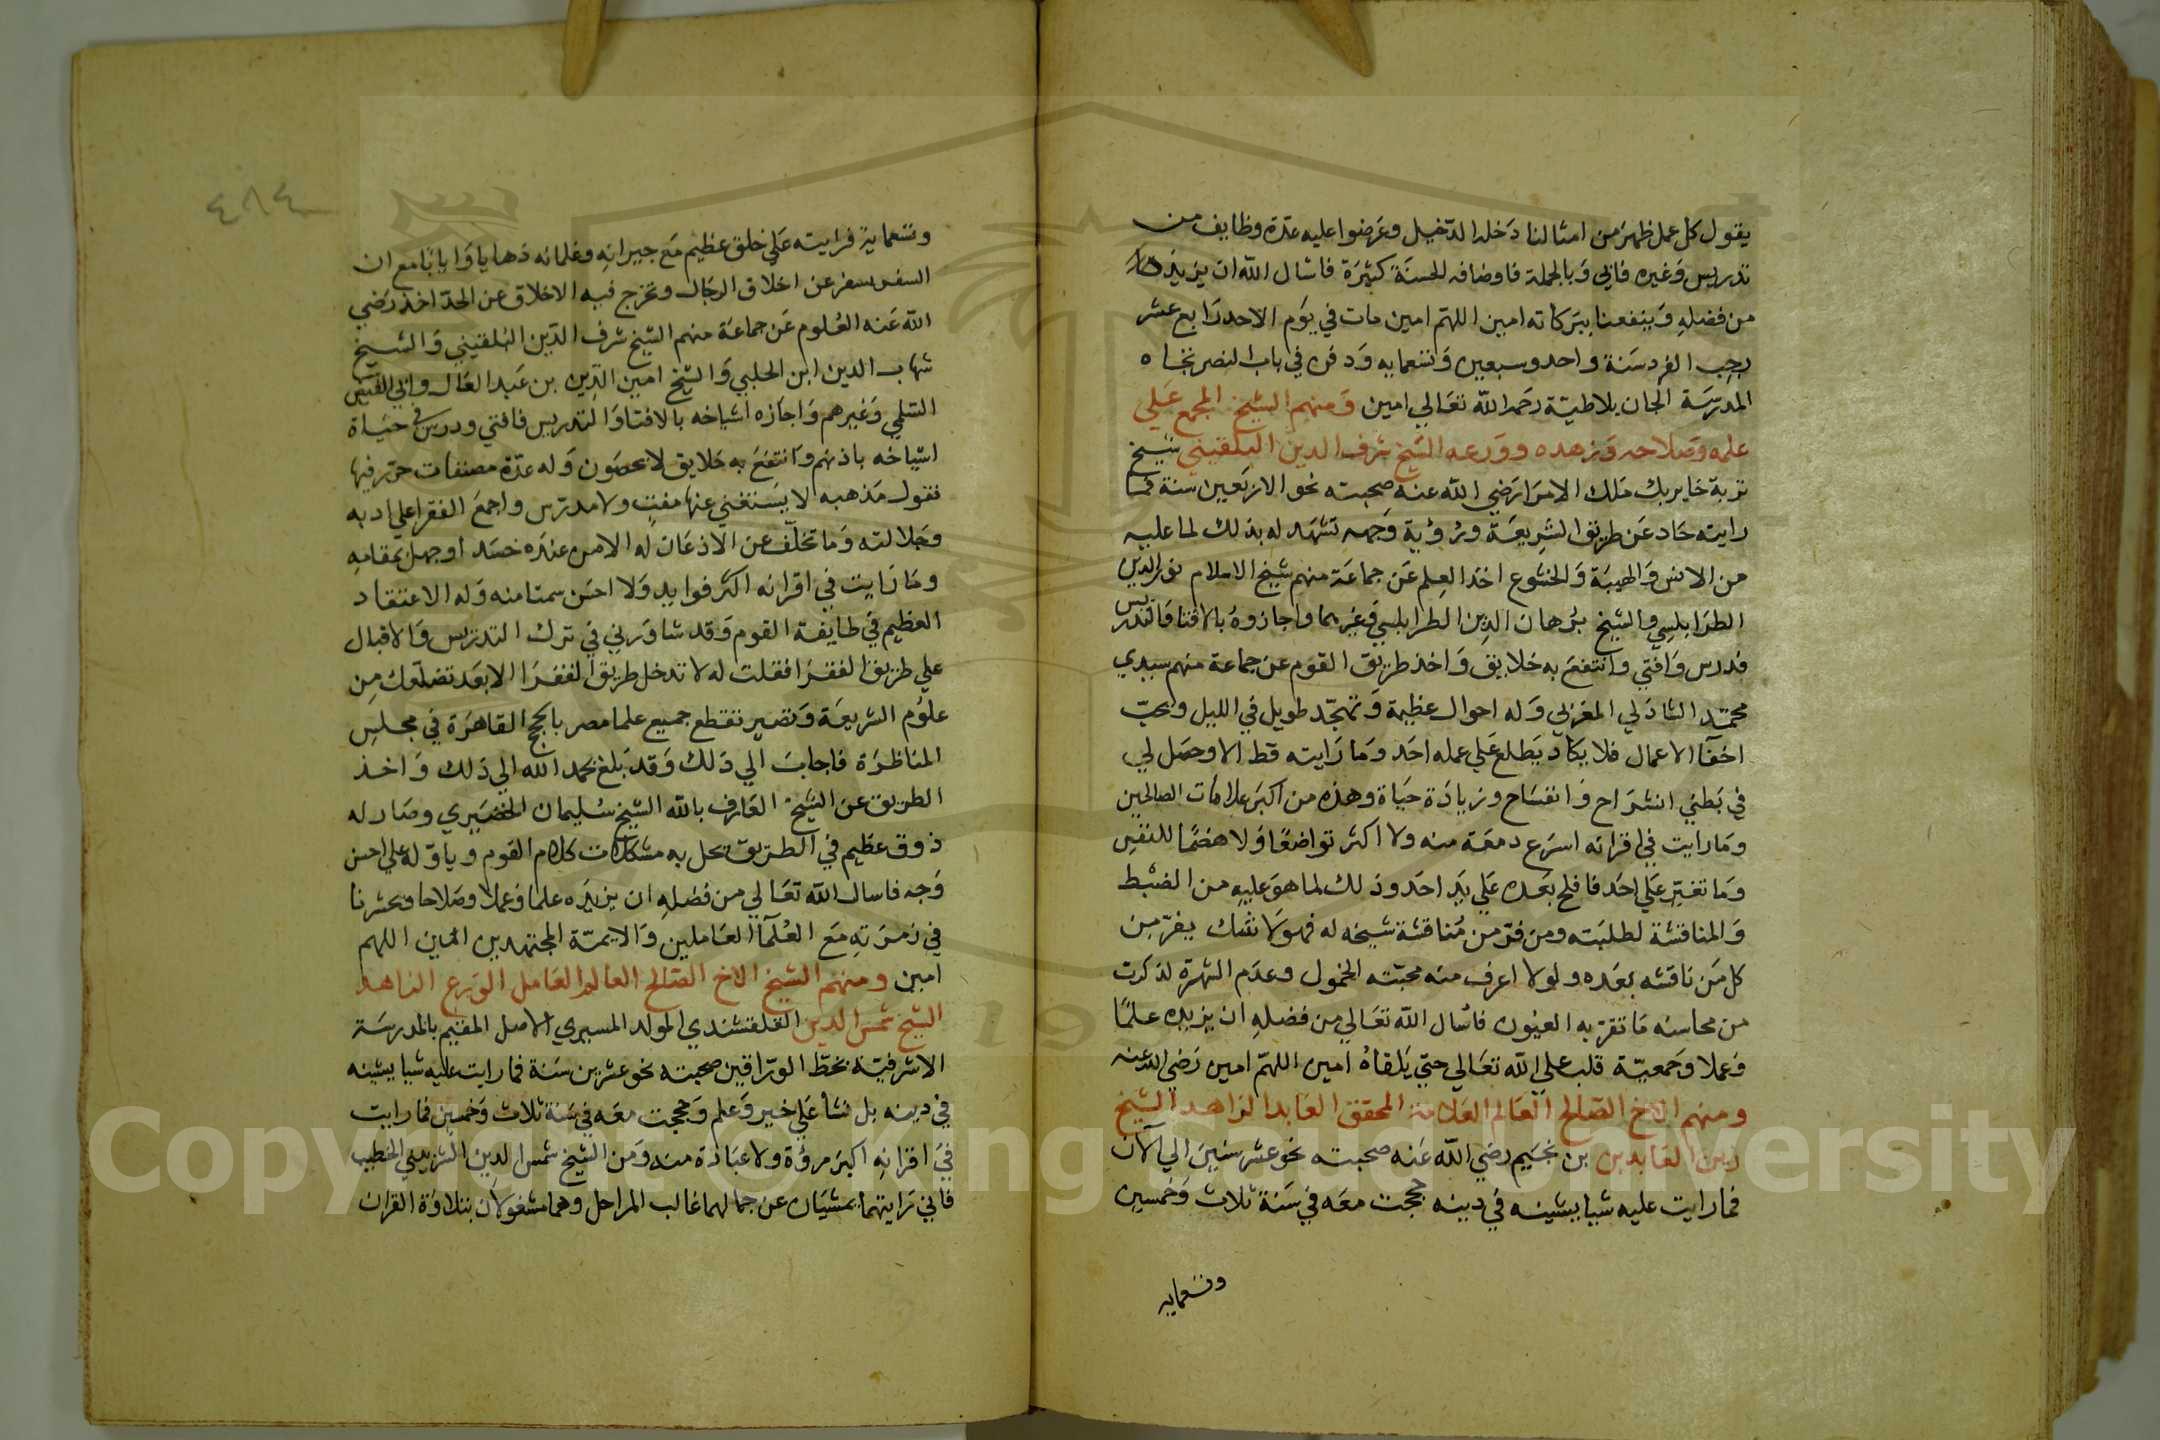 يقول كل عمل ظهر من امثالنا دخله الدخيل وعرضوا عليه عدة وظايف من
تدريس وغيره فابي وبالجملة فاوصافه الحسنة كثيرة فاسال الله ان يزيده
من فضله وينفعنا ببركاته امين اللهم امين مات في يوم الاحد رابع عشر
رجب الفرد سنة واحد وسبعين وتسعمايه ودفن في باب النصر تجاه
المدرسة الجان بلاطية رحمه الله تعالي امين ومنهم الشيخ المجمع علي
علمه وصلاحه وزهده وورعه الشيخ شرف الدين البلقيني شيخ
تربة خاير بك ملك الامرا رضي الله عنه صحبته نحو الاربعين سنة فما
رايته حاد عن طريق الشريعة ورؤية وجهه تشهد له بذلك لما عليه
من الانس والهيبة والخشوع اخذ العلم عن جماعة منهم شيخ الاسلام نور الدين
الطرابلسي والشيخ برهان الدين الطرابلسي وغيرهما واجازوه بالافتا والتدريس
فدرس وافتي وانتفع به خلايق واخذ طريق القوم عن جماعة منهم سيدي
محمد الشاذلي المغربي وله احوال عظيمة وتهجد طويل في الليل ويحب
اخفا الاعمال فلا يكاد يطلع علي عمله احد وما رايته قط الا وحصل لي
في بطني انشراح وانفساح وزيادة حياة وهذه من اكبر علامات الصالحين
وما رايت في اقرانه اسرع دمعة منه ولا اكثر تواضعا ولا هضما للنفس
وما تغير علي احد فافلح بعده علي يد احد وذلك لما هو عليه من الضبط
والمناقشة لطلبته ومن فر من مناقشة شيخه له فهو لا شك يفر من
كل من ناقشه بعده ولولا اعرف منه محبته الخمول وعدم الشهرة لذكرت
من محاسنه ما تقر به العيون فاسال الله تعالي من فضله ان يزيده علما
وعملا وجمعية قلب علي الله تعالي حتي يلقاه امين اللهم امين رضي الله عنه
ومنهم الاخ الصالح العالم العلامة المحقق العابد الزاهد الشيخ
زين العابدين بن نجيم رضي الله عنه صحبته نحو عشر سنين الي الان
فما رايت عليه شيا يشينه في دينه حججت معه في سنة ثلاث وخمسين
وتسعمايه
٤٨٤
وتسعماية فرايته علي خلق عظيم مع جيرانه وغلمانه ذهايا وايابا مع ان
السفر يسفر عن اخلاق الرجال وتخرج فيه الاخلاق عن الحد اخذ رضي
الله عنه العلوم عن جماعة منهم الشيخ شرف الدين البلقيني والشيخ
شهاب الدين ابن الحلبي والشيخ امين الدين بن عبد العال وابي الفيض
السلمي وغيرهم واجازه اشياخه بالافتا والتدريس فافتي ودرس في حياة
اشياخه باذنهم وانتفع به خلايق لا يحصون وله عدة مصنفات حرر فيها
نقول مذهبه لا يستغني عنها مفت ولا مدرس واجمع الفقرا علي ادبه
وجلالته وما تخلف عن الاذعان له الا من عنده حسد او جهل بمقامه
وما رايت في اقرانه اكثر فوايد ولا احسن سمتا منه وله الاعتقاد
العظيم في طايفة القوم وقد شاورني في ترك التدريس والاقبال
علي طريق الفقرا فقلت له لا تدخل طريق الفقرا الا بعد تضلعك من
علوم الشريعة وتصير تقطع جميع علما مصر بالحجج القاهرة في مجلس
المناظرة فاجاب الي ذلك وقد بلغ بحمد الله الي ذلك واخذ
الطريق عن الشيخ العارف بالله الشيخ سليمان الخضيري وصار له
ذوق عظيم في الطريق تحل به مشكلات كلام القوم وياوله علي احسن
وجه فاسال الله تعالي من فضله ان يزيده علما وعملا وصلاحا ويحشرنا
في زمرته مع العلمآ العاملين والايمة المجتهدين امين اللهم
امين ومنهم الشيخ الاخ الصالح العالم العامل الورع الزاهد
الشيخ شمس الدين القلقشندي المولد المسيري الاصل المقيم بالمدرسة
الاشرفية بخط الوراقين صحبته نحو عشرين سنة فما رايت عليه شيا يشينه
في دينه بل نشا علي خير وعلم وحججت معه في سنة ثلاث وخمسين فما رايت
في اقرانه اكبر مروة ولا عبادة منه ومن الشيخ شمس الدين الشربيني الخطيب
فاني رايتهما يمشيان عن جمالهما غالب المراحل وهما مشغولان بتلاوة القران
Copyright © King Saud University